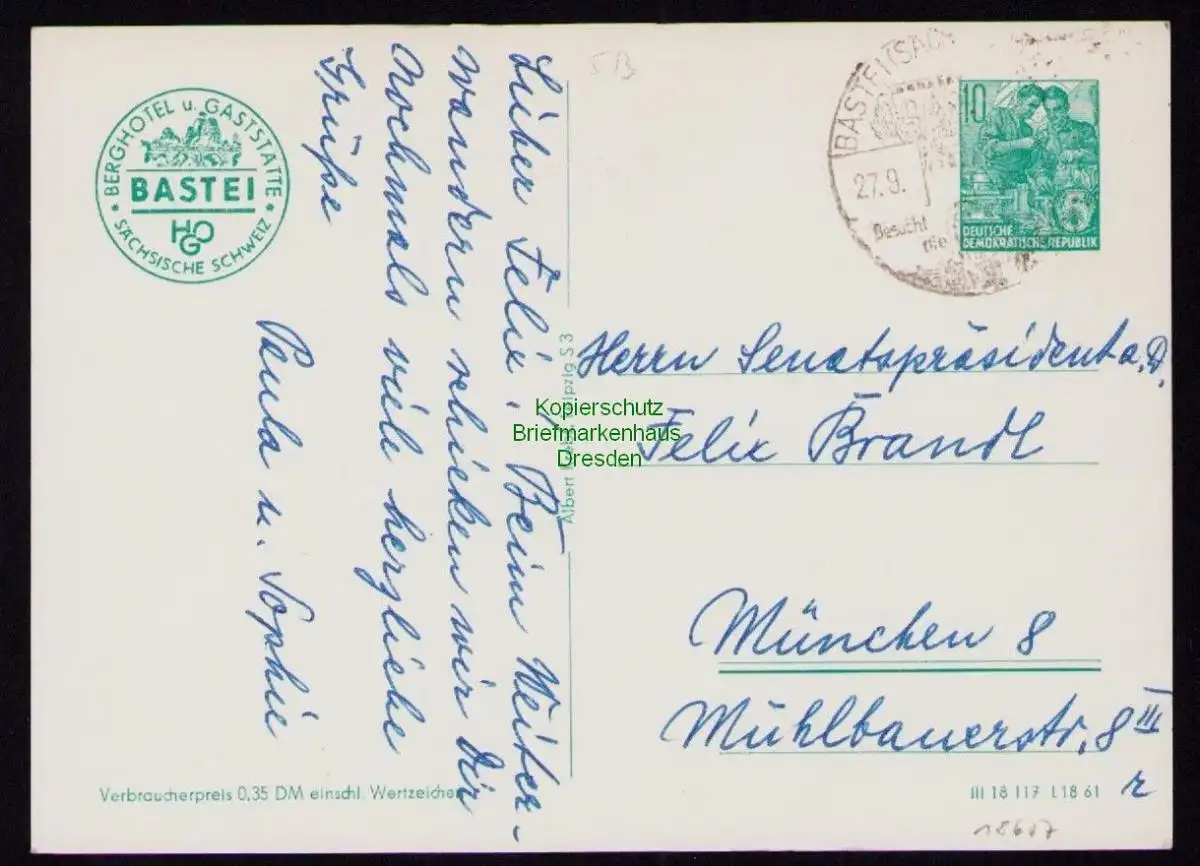 BERGHOTEL u. GASTSTÄTTE
BASTEI
HOG
SÄCHSISCHE SCHWEIZ
Lieber Felix, Beim Weiter-
wandern schicken wir Dir
nochmals viele herzliche
Grüße
Paula u. Sophie
Verbraucherpreis 0,35 DM einschl. Wertzeichen
Albert Leipzig S 3
Kopierschutz
Briefmarkenhaus
Dresden
BASTEI (SÄCH
27.9.
Besucht
die
10
DEUTSCHE
DEMOKRATISCHE REPUBLIK
Herrn Senatspräsident a. D.
Felix Brandl
München 8
Mühlbauerstr. 8 III
r
III 18 117 L 18 61
18657